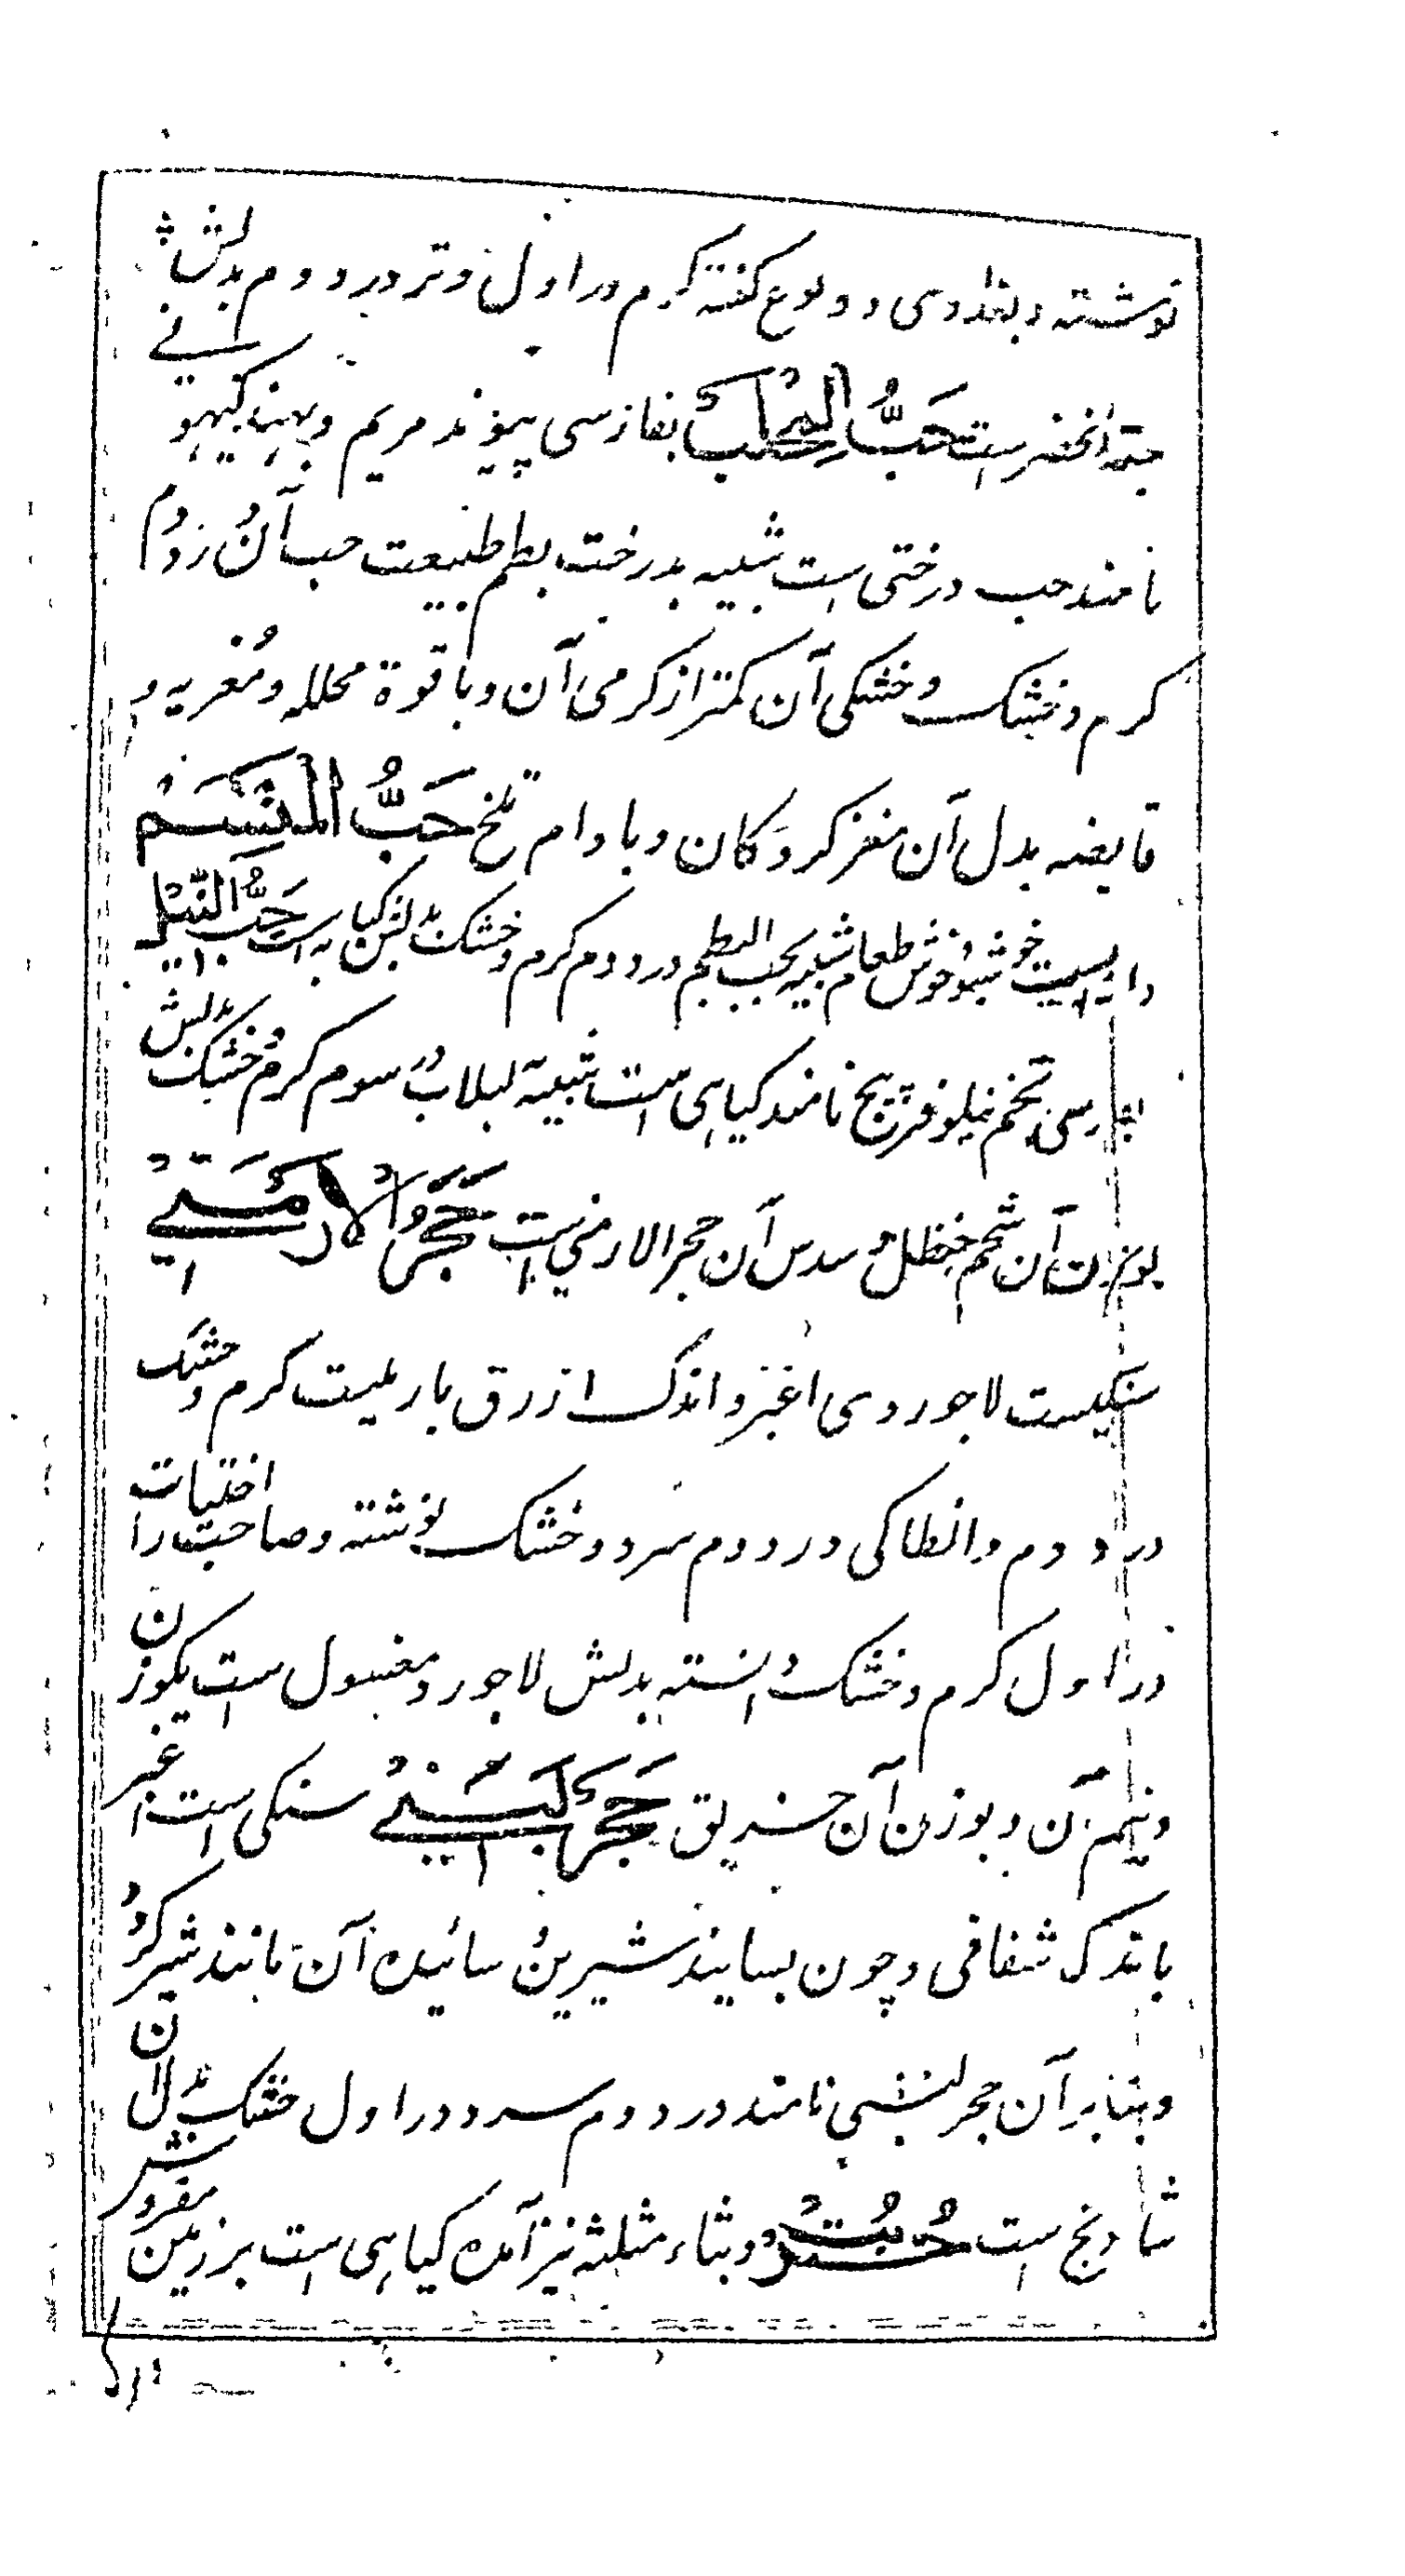 نوشته و بغدادی دو نوع گفته گرم در اول و تر در دوم بدلش
حبة الخضر است حَبُّ المحلب بفارسی پیوند مریم و بهند کیهو
نامند حب درختی است شبیه بدرخت بطم طبیعت حب آن در دوم
گرم و خشک و خشکی آن کمتر از گرمی آن و با قوة محلله و مغریه و
قابضه بدل آن مغز کردکان و بادام تلخ حَبُّ المنسم
دانیست خوشبو خوش طعام شبیه بحب البطم در دوم گرم و خشک بدلش کبابه است حَبُّ النّیل
بفارسی تخم نیلوفر پیچ نامند گیاهی است شبیه لبلاب در سوم گرم و خشک بدلش
بوزن آن شحم حنظل و سدس آن حجر الارمنی است حَجَرُ الارمنی
سنگیست لاجوردی اغبر و اندک ازرق با رملیت گرم و خشک
در دوم و انطاکی در دوم سرد و خشک نوشته و صاحب اختیارات
در اول گرم و خشک دانسته بدلش لاجورد مغسول است یکوزن
و نیم آن و بوزن آن خربق حَجَر لَبَنی سنگی است اغبر
باندک شفافی و چون بسایند شیرین و سائیده آن مانند شیر گردد
و بنابر آن حجر لبنی نامند در دوم سرد و در اول خشک بدل آن
شادنج است و بثاء مثلثه نیز آمده گیاهی است بر زمین مفروش